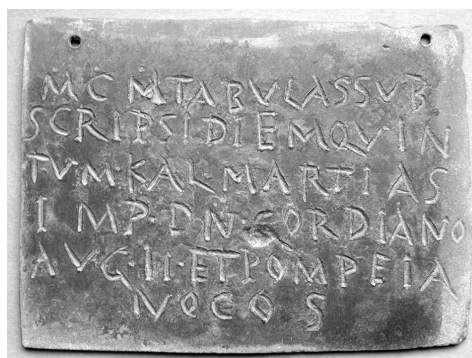 M C M TABVLAS SVB
SCRIPSI DIEM QVIN
TVM · KAL · MARTIAS
IMP · D N · GORDIANO
AVG · II · ET POMPEIA
NO COS